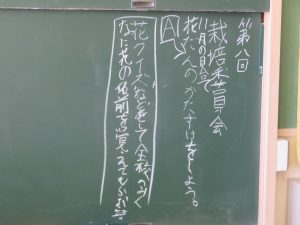 第八回
栽培委員会
11月の目あて
花だんのかたずけをしよう。
A
花クイズなどをして全校のみ
なに花の名前を覚えてもらお